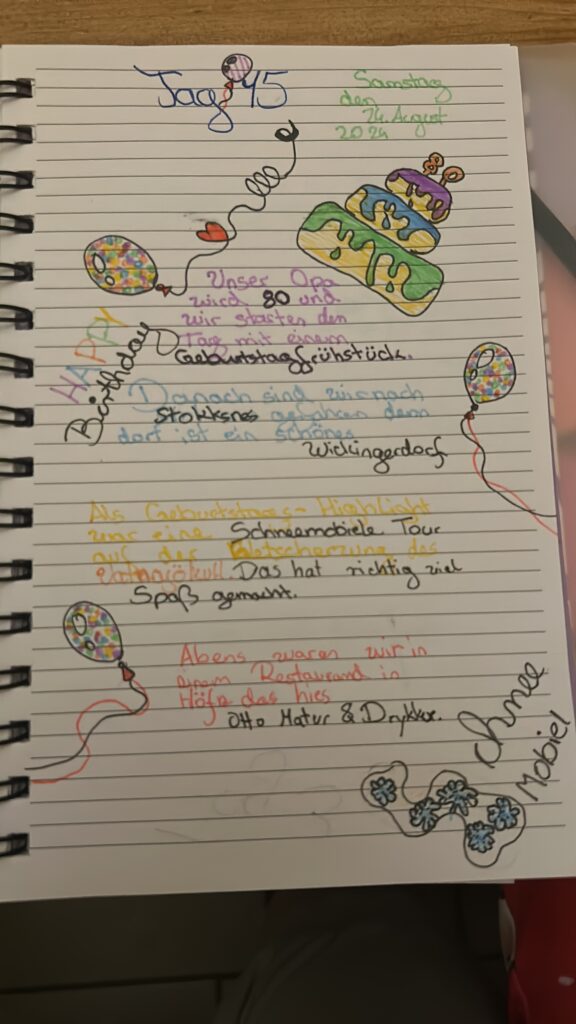 Tag 45
Samstag
den
24. August
2024
80
Unser Opa
wird 80 und
wir starten den
Tag mit einem
Geburtstagsfrühstück.
HAPPY
Birthday
Danach sind wir nach
Stokksnes gefahren denn
dort ist ein schönes
Wickingerdorf
Als Geburtstags-Highlight
war eine Schneemobiele Tour
auf der Gletscherzung des
Das hat richtig viel
Spaß gemacht.
Abens waren wir in
einem Restaurand in
Höfn das hies
Otto Matur & Drykkur.
chnee
Mobiel